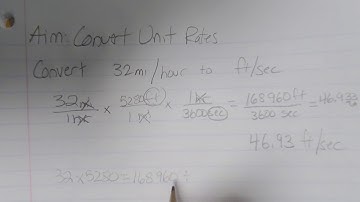 Aim: Convert Unit Rates
Convert 32mi/hour to ft/sec
32mi/1hr × 5280ft/1mi × 1hr/3600sec = 168960ft/3600 sec = 46.933
46.93 ft/sec
32 × 5280 = 168960 ÷